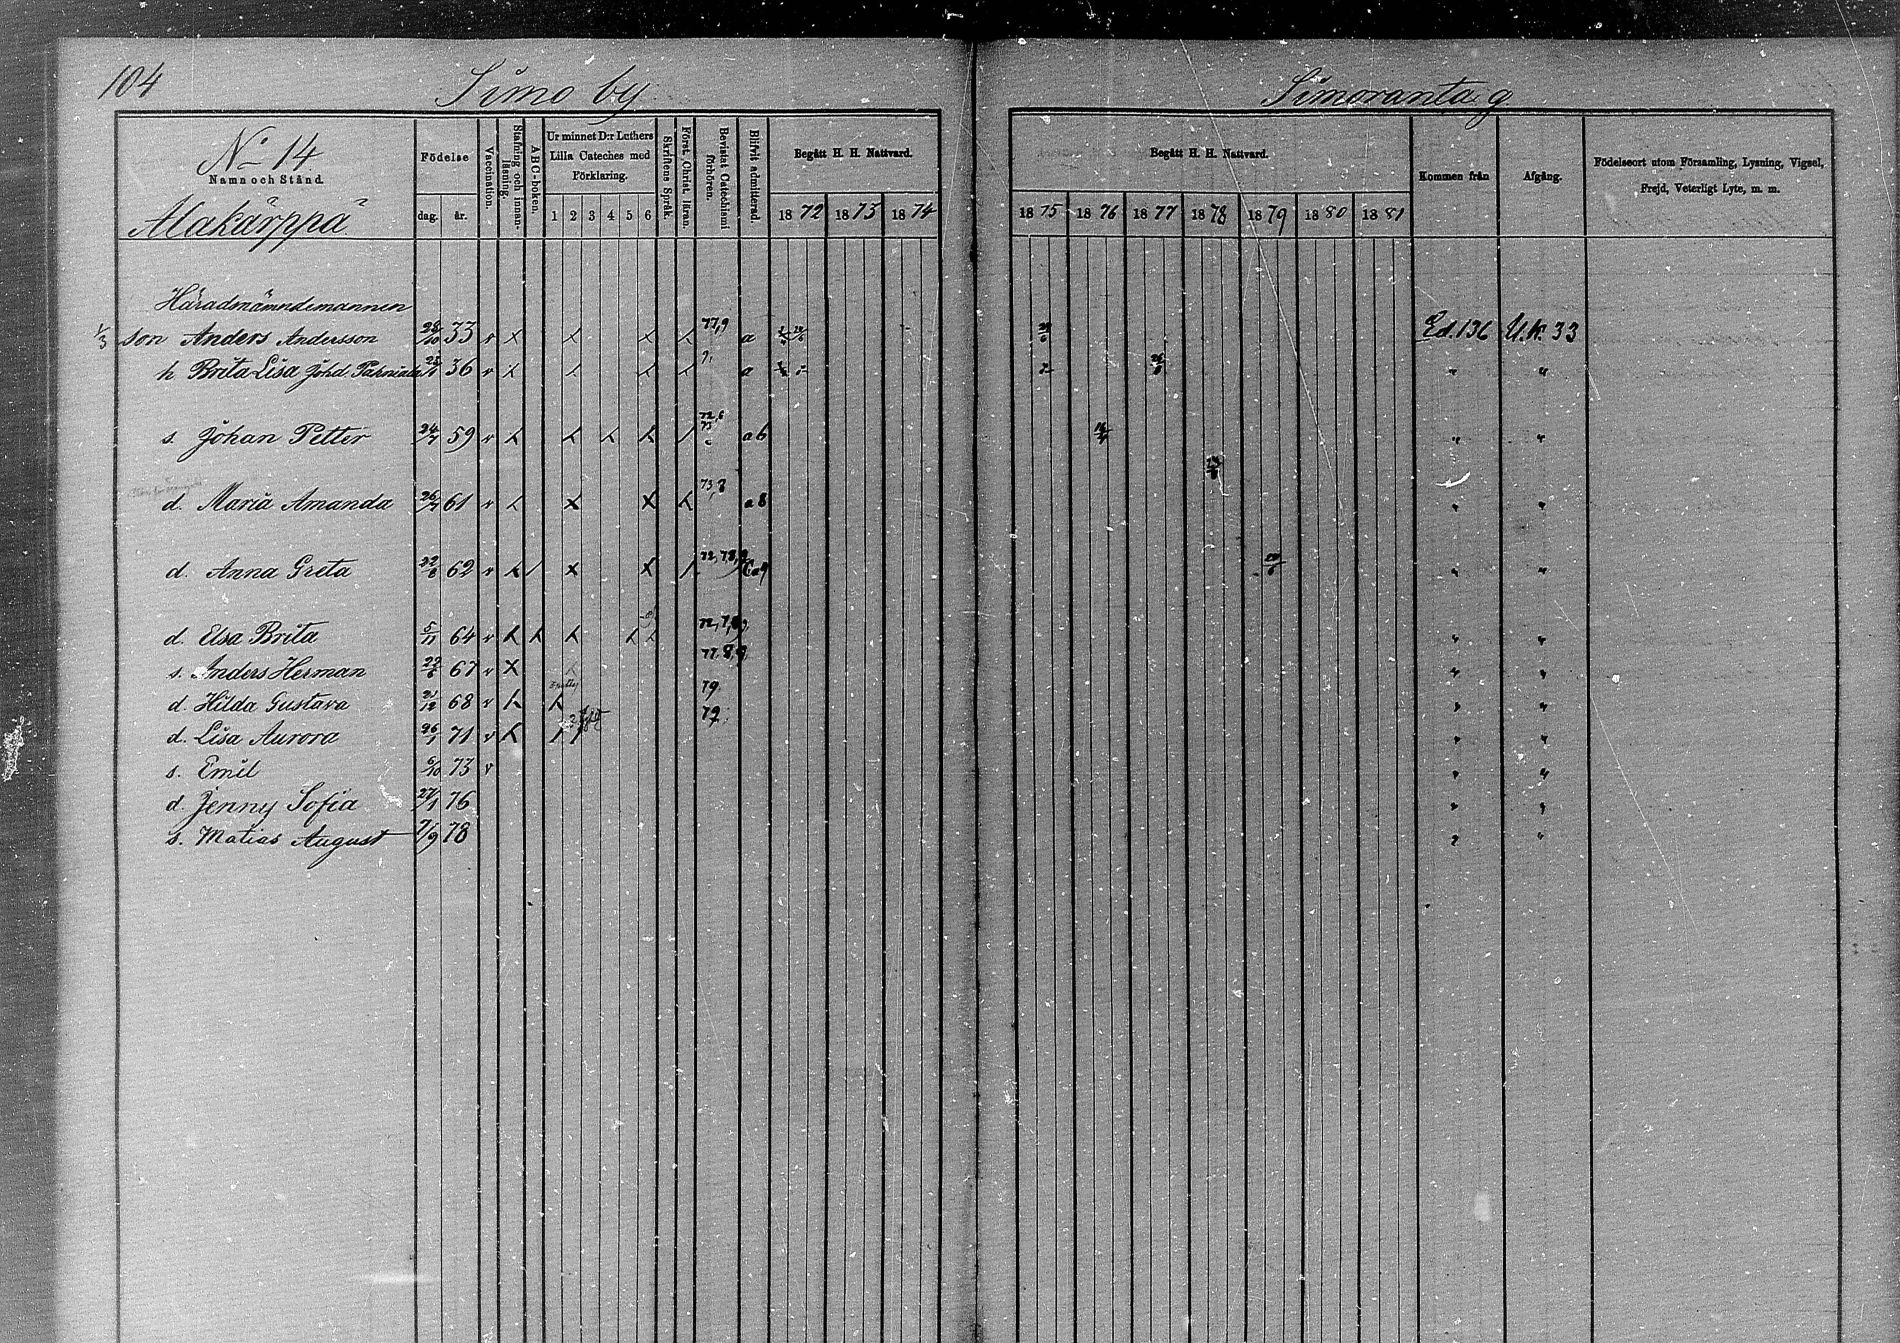 104
Simo by
Simoranta g
No 14
Namn och Stånd.
Alakärppä
Födelse
dag. år.
Vaccination.
Stafning och innan-läsning.
ABC-boken.
Ur minnet D:r Luthers
Lilla Cateches med
Förklaring.
1 2 3 4 5 6
Skriftens Språk.
Först. Christ. läran.
Bevistat Catechismi förhören.
Blifvit admitterad.
Begått H. H. Nattvard.
1872 1873 1874
Begått H. H. Nattvard.
1875 1876 1877 1878 1879 1880 1881
Kommen från
Afgång.
Födelseort utom Församling, Lysning, Vigsel,
Frejd, Veterligt Lyte, m. m.
Häradsnämndemannen
1/3 son Anders Andersson 33 v x 77,9 a Ed. 136 U.K. 33
h Brita Lisa Joh.d. 36 v a " "
s. Johan Petter 24/7 59 v 72,6 a6 " "
d. Maria Amanda 26/7 61 v 73,8 a8 " "
d. Anna Greta 22/8 62 v " "
d. Elsa Brita 5/11 64 v " "
s. Anders Herman 67 v x 77,8,9 " "
d. Hilda Gustava 68 v 79 " "
d. Lisa Aurora 26/1 71 v 79 " "
s. Emil 6/10 73 v " "
d. Jenny Sofia 27/1 76 " "
s. Matias August 7/9 78 " "